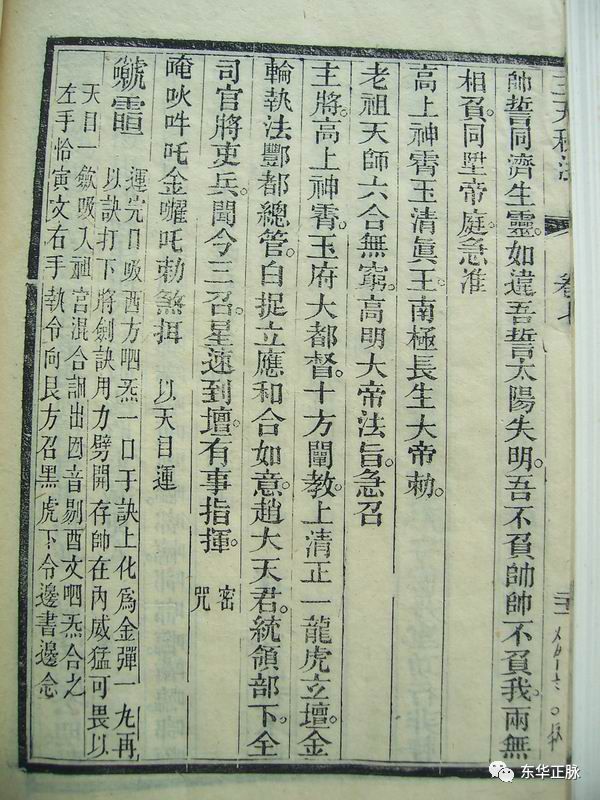 帥誓同濟生靈。如違吾誓太陽失明。吾不負帥帥不負我。兩無
相負同陞帝庭。急准
高上神霄玉清眞王。南極長生大帝勑。
老祖天師六合無窮。高明大帝法旨。急召
主將。高上神霄。玉府大都督。十方闡教。上清正一龍虎立壇。金
輪執法酆都總管。白捉立應和合如意。趙大天君。統領部下。全
司官將吏兵。聞今三召。星速到壇。有事指揮。密咒
唵吙吽吒金嚁吒勑煞揖 以天目運
運先日吸西方呬炁一口于訣上化爲金彈一九再
以訣打下將劍訣用力劈開存帥在內威猛可畏以
天目一歛吸入祖宮混合訕出囸音剔酉文呬炁合之
左手恰寅文右手執令向艮方召黑虎下令邊書邊念
卷七
东华正脉